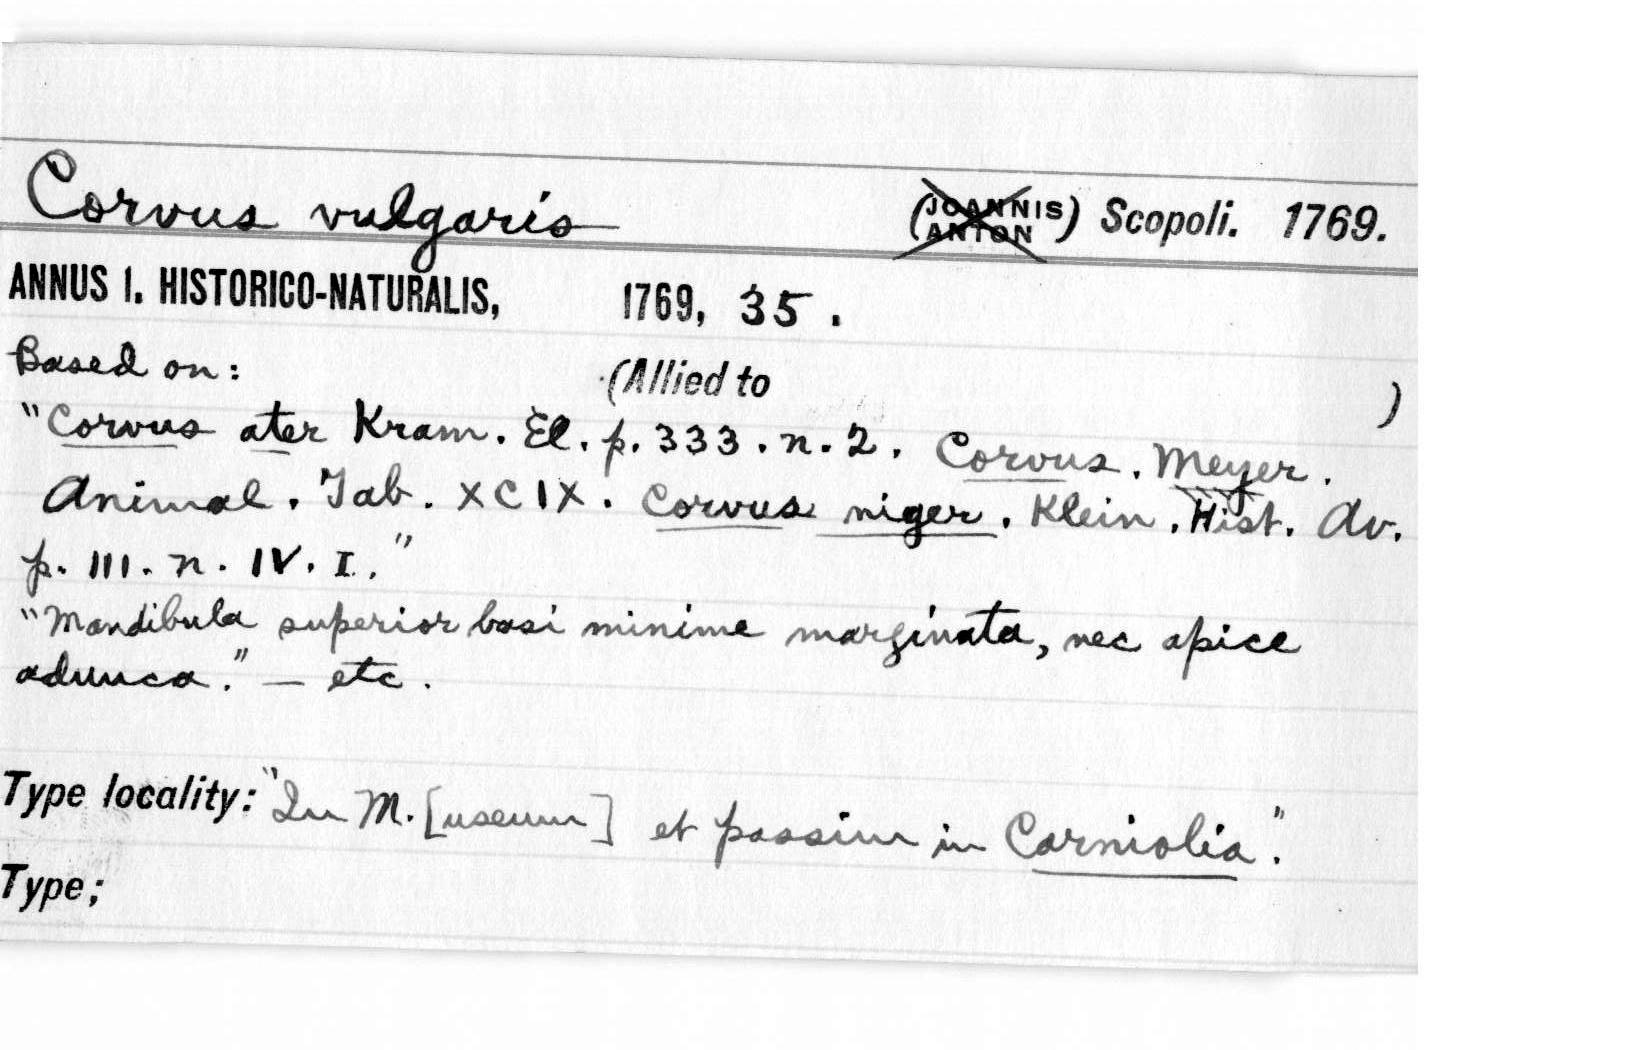 Corvus vulgaris (JOANNIS ANTON) Scopoli. 1769.
ANNUS I. HISTORICO-NATURALIS, 1769, 35.
Based on: (Allied to )
"Corvus ater Kram. El. p. 333. n. 2. Corvus. Meyer.
Animal. Tab. XCIX. Corvus niger. Klein. Hist. Av.
p. III. n. IV. I."
"Mandibula superior basi minime marginata, nec apice
adunca." — etc.
Type locality: "In M.[useum] et passim in Carniolia".
Type;